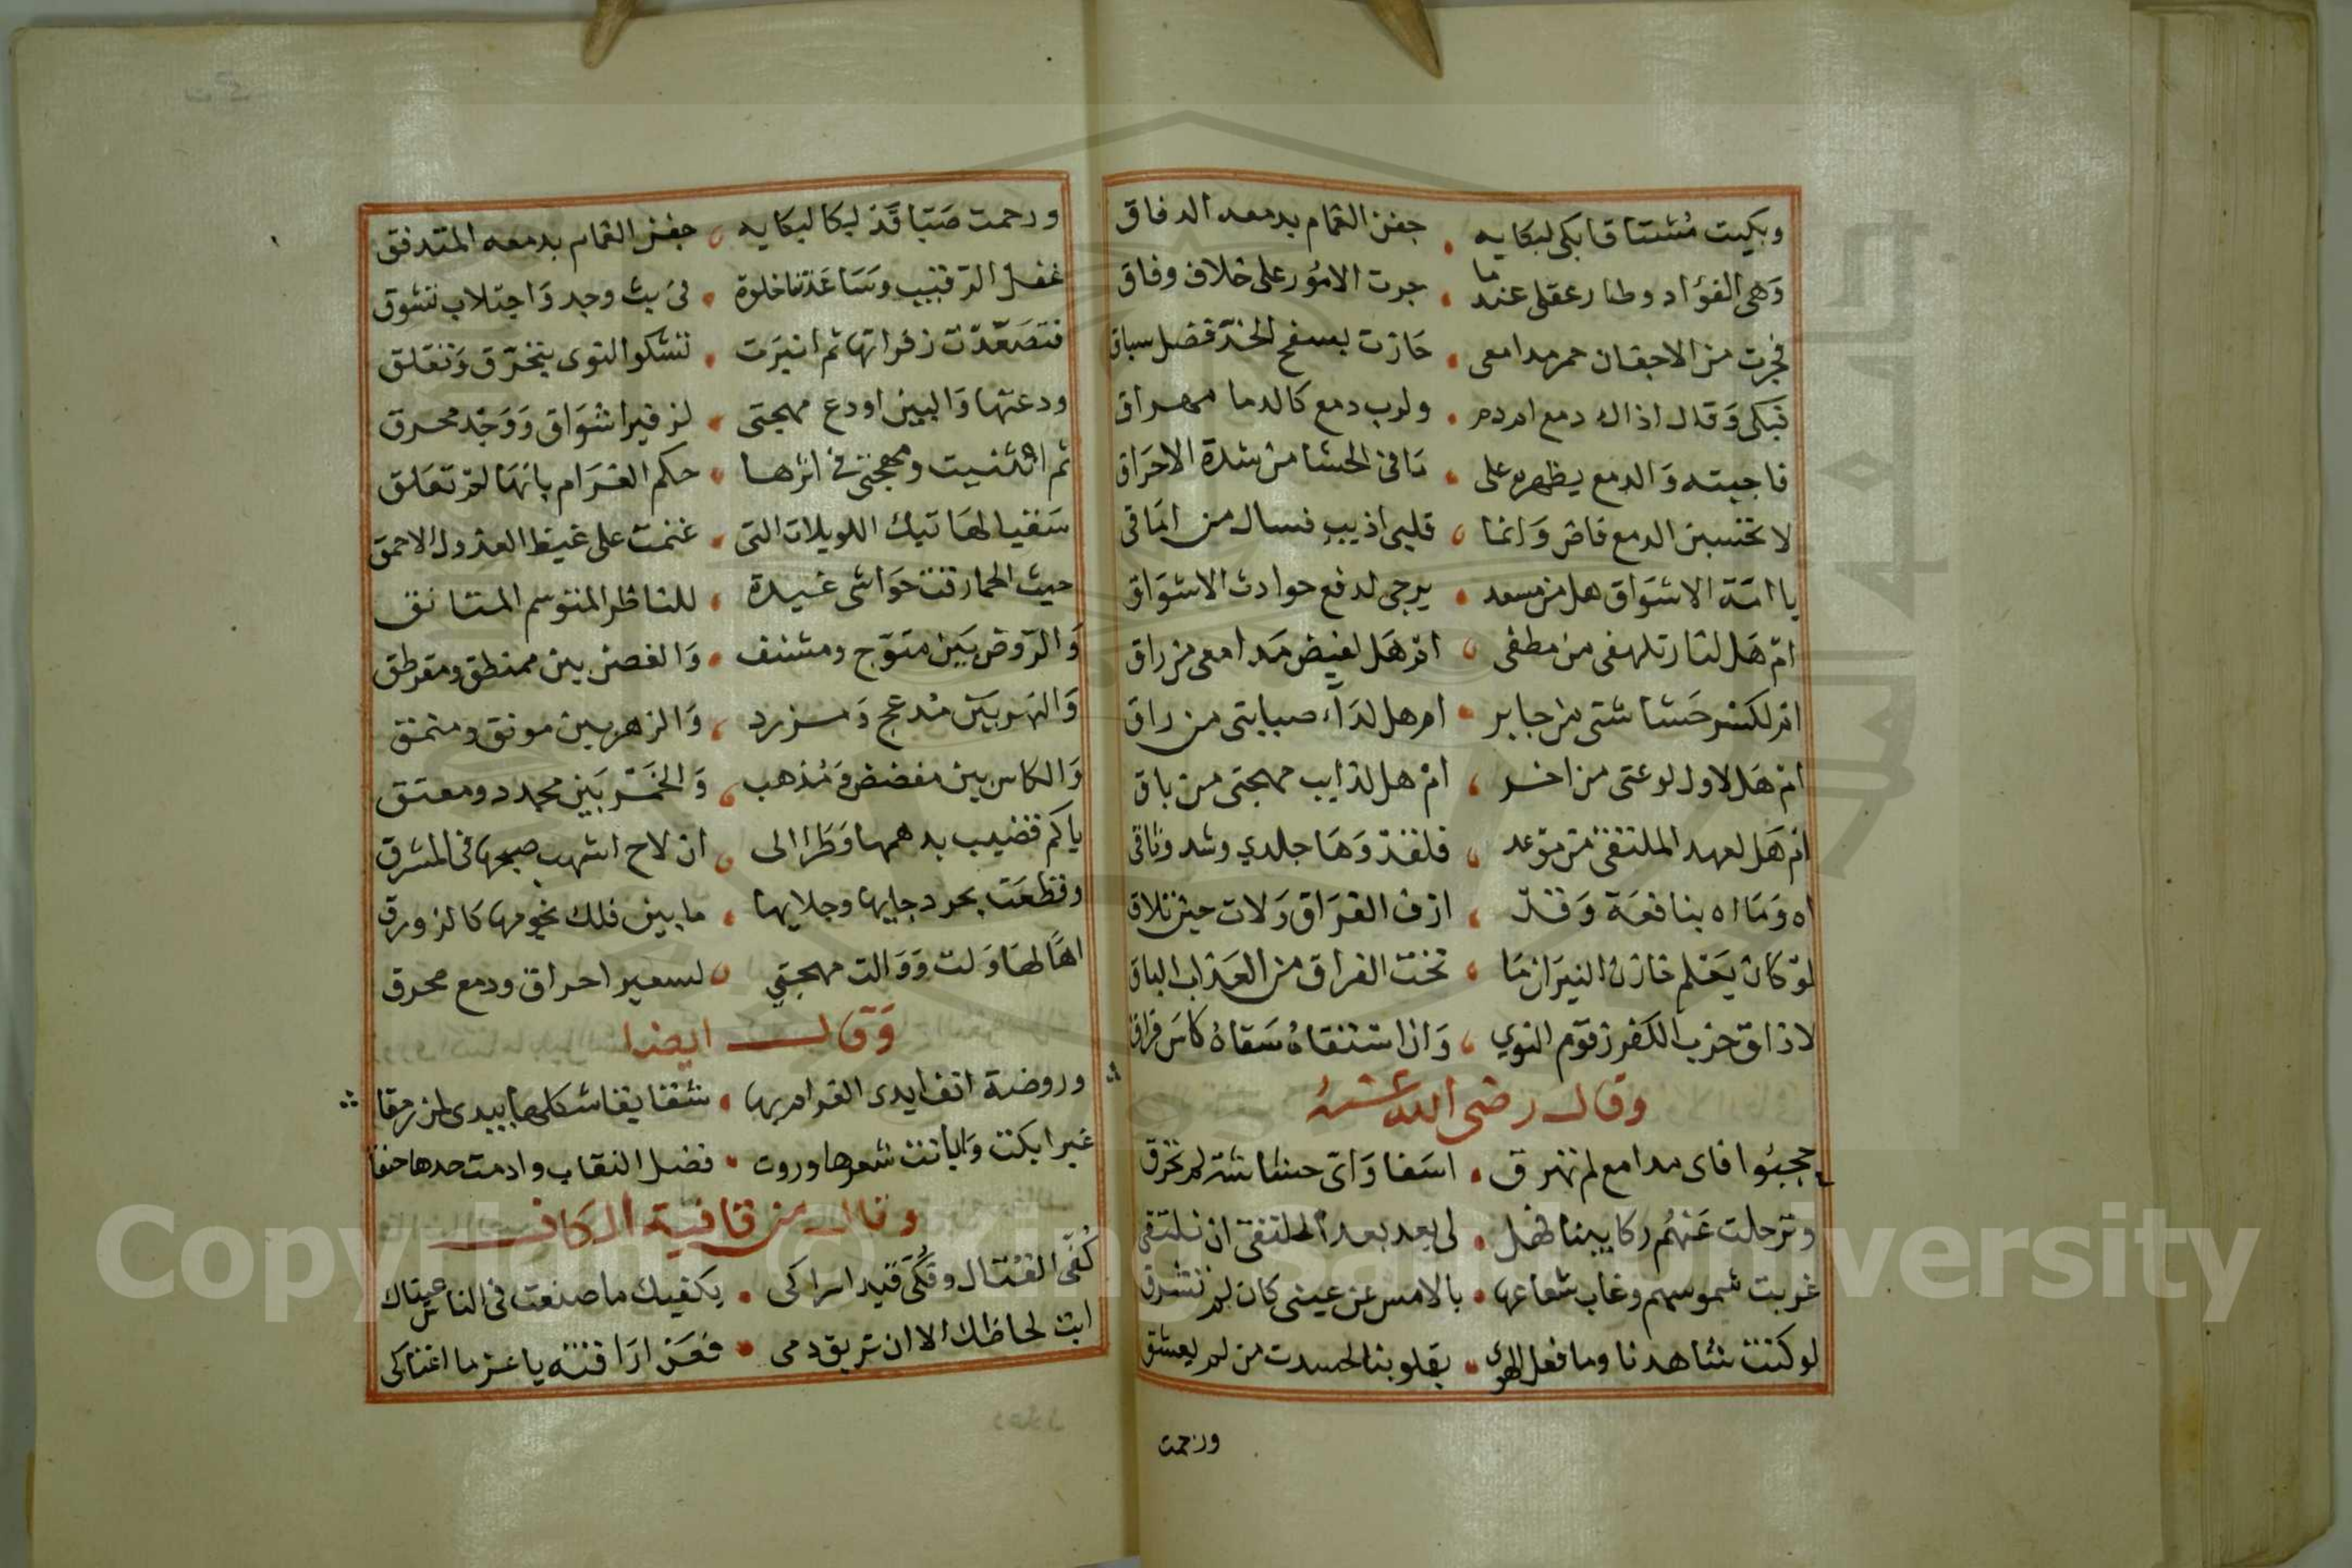 وبكيت مشتاقا بكى لبكايه . جفن الغمام بدمعه الدفاق
وهى الفؤاد وطار عقلى عندما . جرت الامور على خلاف وفاق
فجرت من الاجفان حمر مدامعى . حازت بسفح الخد فضل سباق
فبكى وقال اذاك دمع ام دم . ولرب دمع كالدما مهراق
فاجبته والدمع يظهره على . مافى الحشا من شدة الاحراق
لا تحسبن الدمع فاض وانما ، قلبى اذيب فسال من اماقى
يا امة الاشواق هل من مسعد . يرجى لدفع حوادث الاشواق
ام هل لنار تلهفى من مطفى ، ام هل لفيض مدامعى من راق
ام لكسر حشاشتى من جابر . ام هل لداء صبابتى من راق
ام هل لاول لوعتى من اخر ، ام هل لذايب مهجتى من باق
ام هل لعهد الملتقى من موعد ، فلقد وها جلدي وشد وثاقى
اه وما اه بنافعة وقد ، ازف الفراق ولات حين تلاق
لو كان يعلم خازن النيران ما ، تحت الفراق من العذاب الباق
لاذاق حزب الكفر زقوم النوي ، واذا استقاه سقاه كاس فراق
وقال رضى الله عنه
حجبوا فاى مدامع لم تهرق . اسفا واى حشاشة لم تحرق
وترحلت عنهم ركايبنا فهل . لى بعد بعد الملتقى ان نلتقى
غربت شموسهم وغاب شعاعها . بالامس عن عينى كان لم تشرق
لو كنت شاهدنا وما فعل الهوى . بقلوبنا لحسدت من لم يعشق
ورحمت
ورحمت صبا قد بكا لبكايه ، جفن الغمام بدمعه المتدفق
غفل الرقيب وساعدتنا خلوة . فى بث وجد واجتلاب تشوق
فتصعدت زفراتها ثم انبرت . تشكو النوى بتحرق وتقلق
ودعتها والبين اودع مهجتى . لزفير اشواق ووجد محرق
ثم انثنيت ومهجتى فى اثرها . حكم الغرام بانها لم تعلق
سقيا لهاتيك اللويلات التى . غنمت على غيظ العذول الاحمق
حيث الحما رقت حواشى غيده . للناظر المتوسم المتانق
والروض بين متوج ومشنف . والغصن بين ممنطق ومقرطق
والنهر بين مدعج ومزرد ، والزهر بين مونق ومنمق
والكاس بين مفضض ومذهب ، والخمر بين مجدد ومعتق
ياكم قضيب بدهمها وطرا الى ، ان لاح اشهب صبحها فى المشرق
وقطعت بحر دجايها وجلايها . ما بين فلك نجومها كالزورق
اها لها ولت ووالت مهجتي ، لسعير احراق ودمع محرق
وقال ايضا
وروضة انف ايدى الغرام بها . شقايقا شكلها يبدى لمن رمقا
غيرا بكت وابانت شعرها وروت . فضل النقاب وادمت خدها حنقا
وقال من قافية الكاف
كفى القتال وفكى قيد اسراكى . يكفيك ما صنعت فى الناس عيناك
ابت لحاظك الا ان تريق دمى . فعن اراقته يا عز ما اغناكى